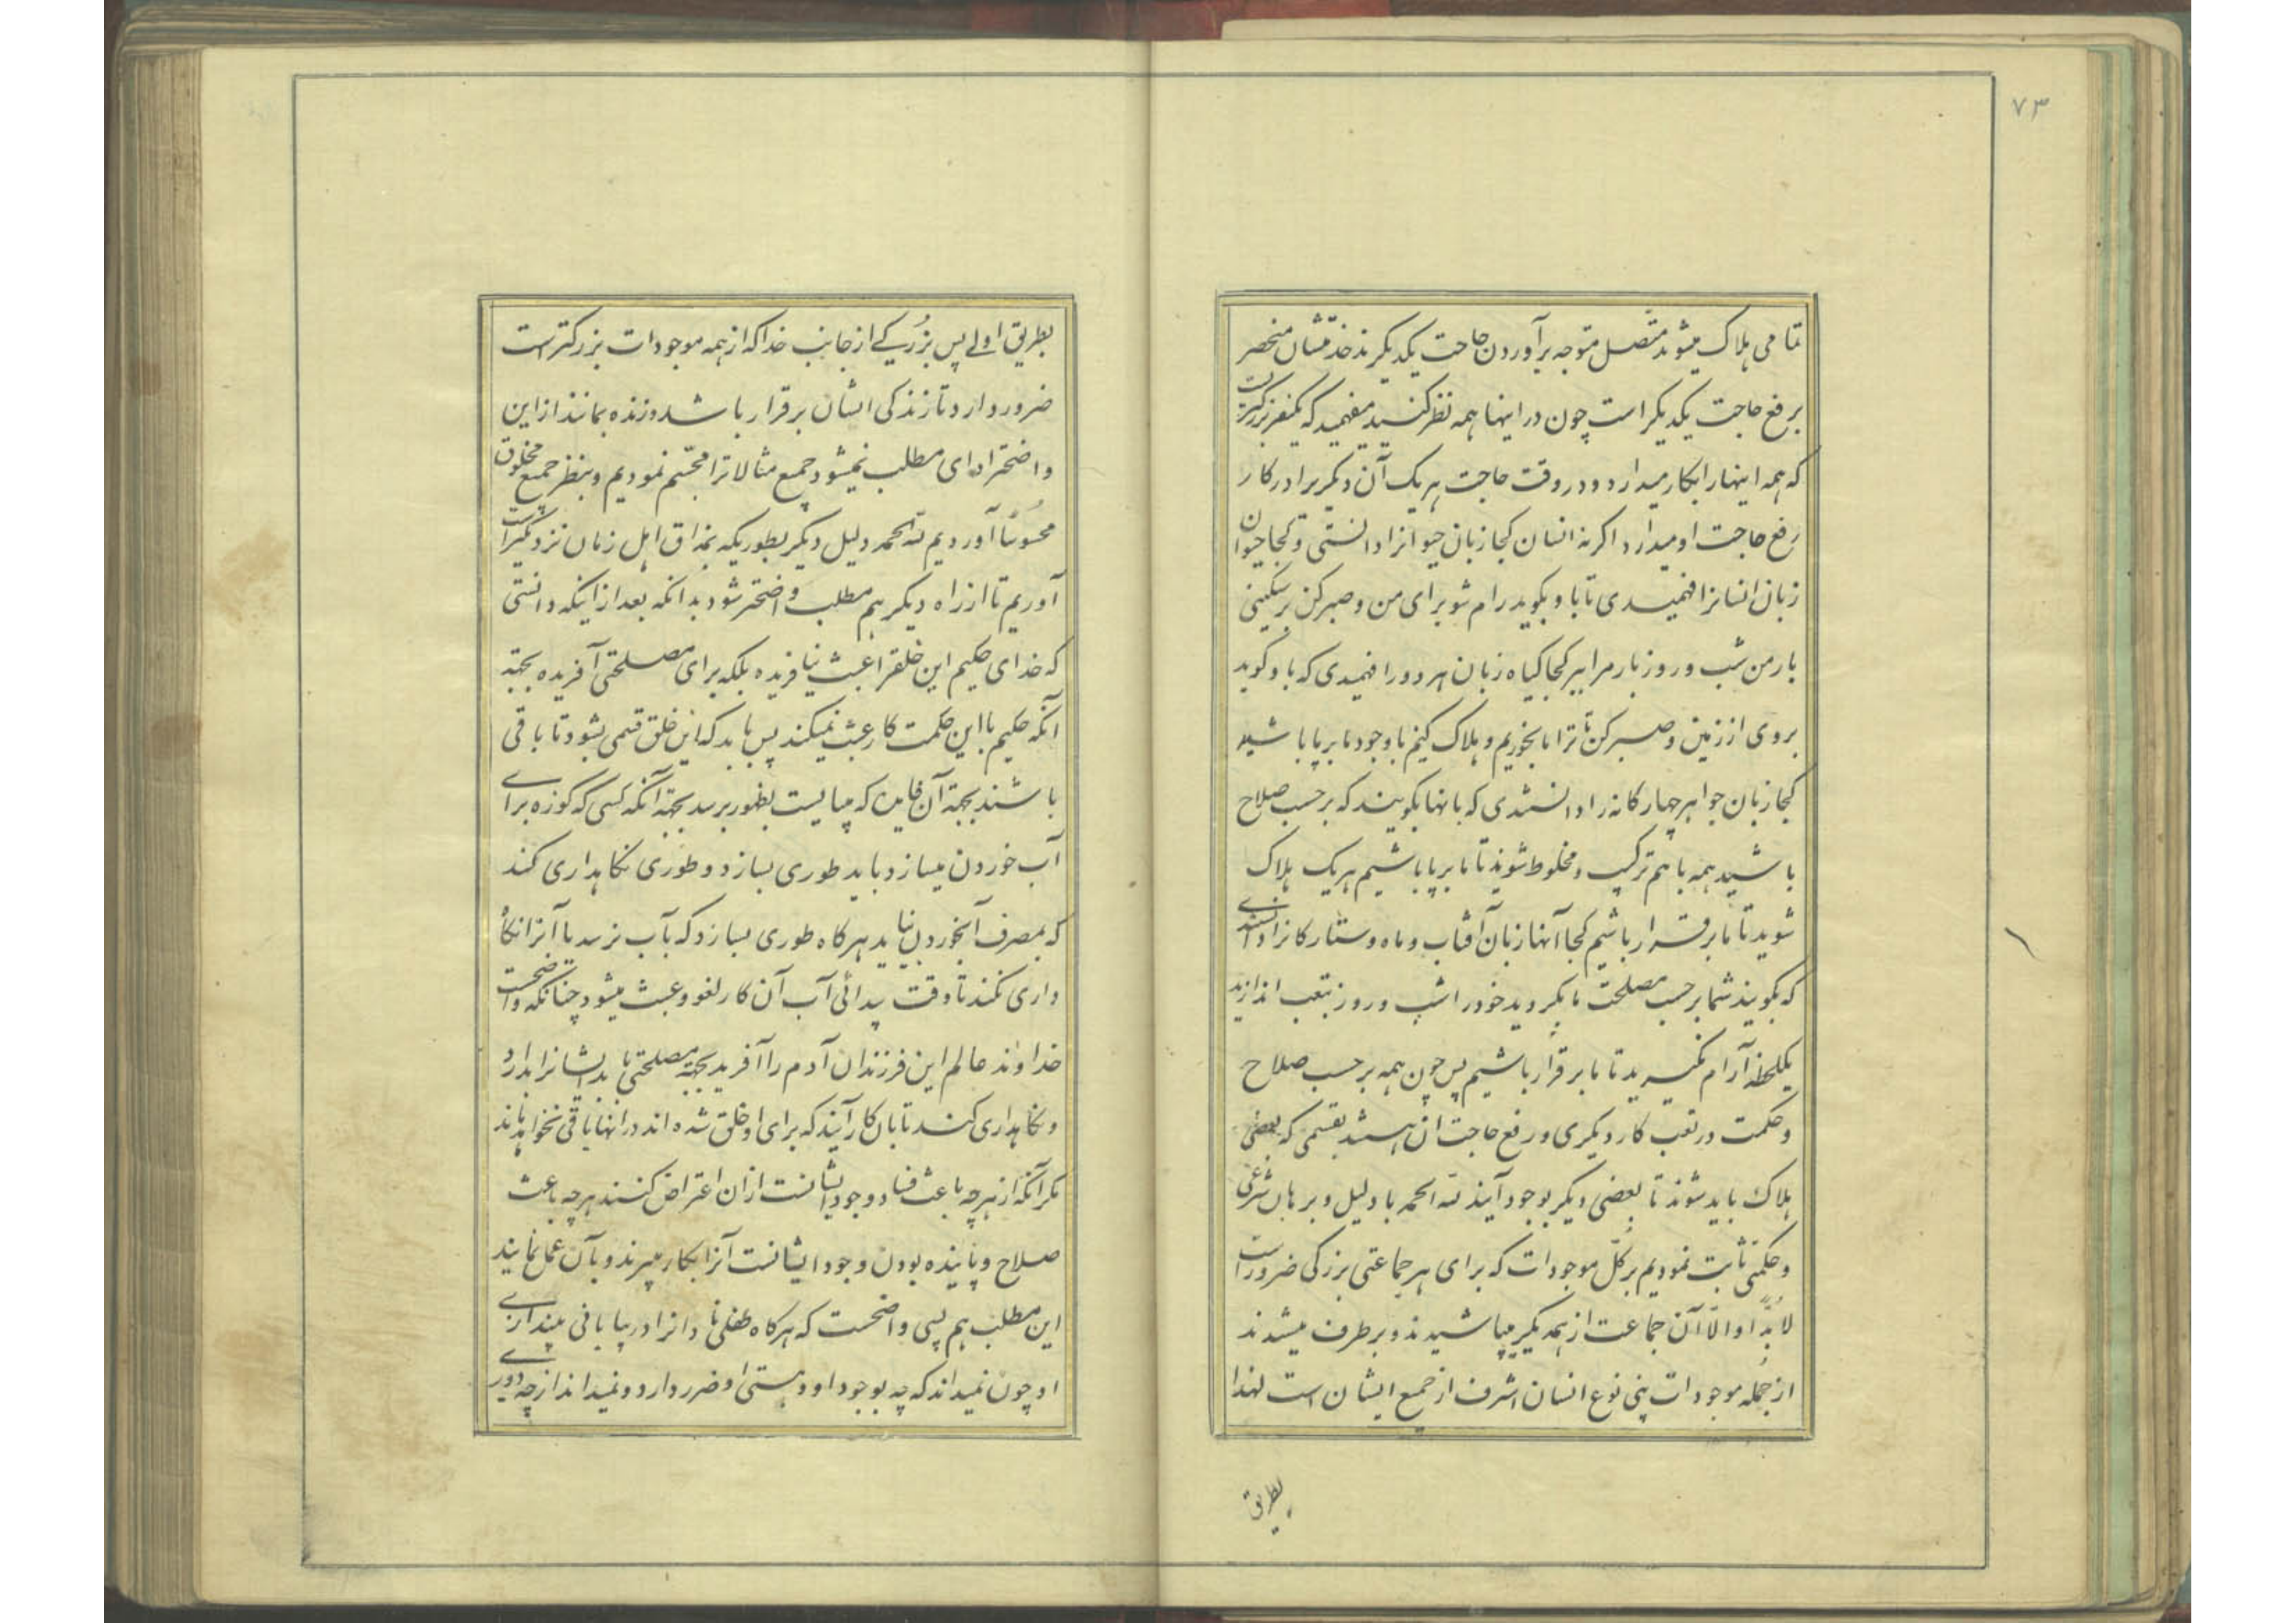 ۷۳
تمامی هلاک میشوند متصل متوجه برآوردن حاجت یکدیگرند خدمتشان منحصر
برفع حاجت یکدیگر است چون در اینها همه نظر کنید میفهمید که یکنفر بزرگیست
که همه اینها را بکار میدارد و در وقت حاجت هریک آن دیگر برا در کار
رفع حاجت او میدارد اگر نه انسان کجا زبان حیوانرا دانستی و کجا حیوان
زبان انسانرا فهمیدی تا باو بگوید رام شو برای من و صبر کن بر سنگینی
بار من شب و روز بار مرا ببر کجا گیاه زبان هر دو را فهمیدی که باو گوید
بروی از زمین و صبر کن تا ترا ما بخوریم و هلاک کنیم با وجود ما برپا باشید
کجا زبان جواهر چهارگانه را دانستندی که بانها بگویند که بر حسب صلاح
باشید همه با هم ترکیب و مخلوط شوید تا ما برپا باشیم هریک هلاک
شوید تا ما برقرار باشیم کجا آنها زبان آفتاب و ماه و ستارگانرا دانستندی
که بگویند شما بر حسب مصلحت ما بگردید خود را شب و روز بتعب اندازید
یکلحظه آرام نگیرید تا ما برقرار باشیم پس چون همه بر حسب صلاح
و حکمت در تعب کار دیگری و رفع حاجت آن هستند بقسمی که بعضی
هلاک باید شوند تا بعضی دیگر بوجود آیند لله الحمد با دلیل و برهان شرعی
و حکمتی ثابت نمودیم بر کل موجودات که برای هر جماعتی بزرگی ضرور است
لابد او والا آن جماعت از همدیگر میپاشیدند و برطرف میشدند
از جمله موجودات بنی نوع انسان اشرف از جمیع ایشان است لهذا
بطریق
بطریق اولی پس بزرگی از جانب خدا که از همه موجودات بزرگتر است
ضرور دارد تا زندگی ایشان برقرار باشد و زنده بمانند از این
واضحتر ادای مطلب نمیشود جمیع مثالاترا مجسم نمودیم و بنظر جمیع مخلوق
محسوسا آوردیم لله الحمد دلیل دیگر بطوریکه بمذاق اهل زمان نزدیکتر است
آوریم تا از راه دیگر هم مطلب واضحتر شود بدانکه بعد از اینکه دانستی
که خدای حکیم این خلقرا عبث نیافریده بلکه برای مصلحتی آفریده بجهة
آنکه حکیم با این حکمت کار عبث نمیکند پس باید که این خلق قسمی بشود تا باقی
باشند بجهة آن فایده که میبایست بظهور برسد بجهة آنکه کسی که کوزه برای
آب خوردن میسازد باید طوری بسازد و طوری نگاهداری کند
که بمصرف آبخوردن بیاید هرگاه طوری بسازد که بآب نرسد یا آنرا نگاه
داری نکند تا وقت پیدائی آب آن کار لغو و عبث میشود چنانکه واضحست
خداوند عالم این فرزندان آدم را آفرید بجهة مصلحتی باید ایشانرا بدارد
و نگاهداری کند تا بان کار آیند که برای او خلق شده اند در انها باقی نخواهد ماند
مگر آنکه از هرچه باعث فساد وجود ایشانست از ان اعتراض کنند هرچه باعث
صلاح و پاینده بودن وجود ایشانست آنرا بکار میبرند و بآن عمل نمایند
این مطلب هم بسی واضحست که هرگاه طفلی نادانرا در بیابانی بیندازی
او چون نمیداند که چه بوجود او و هستی او ضرر دارد و نمیداند از چه دوری